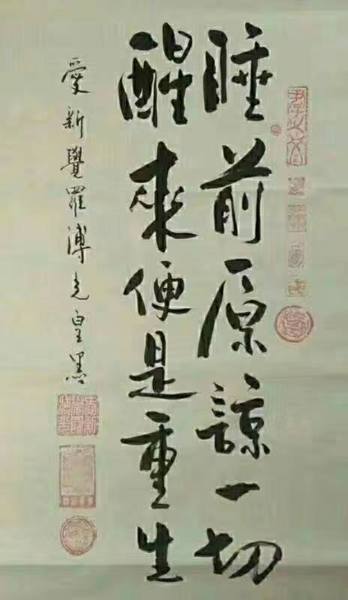 睡前原諒一切
醒來便是重生
愛新覺羅溥皇墨